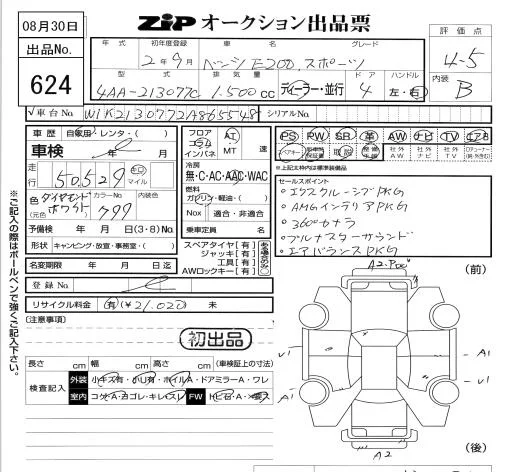 08月30日
出品No.
624
ZIP オークション出品票
年式 初年度登録 車名 グレード
2年9月 ベンツ E200.スポーツ
型式 排気量 ドア ハンドル
4AA-213077C 1.500cc ディーラー・並行 4 左・右
評価点
4-5
内装
B
√車台No. W1K2130772A865548 シリアルNo.
車歴 自家用・レンタ・( )
車検 年 月
走行 50,529 キロ マイル
色 ダイヤモンドホワイト カラーNo. 799 内装色
(元色)
予備検 年 月 日(3・8)No.
形状 キャンピング・放宣・事務室・( )
名変期限 年 月 日迄
登録No.
リサイクル料金 有(¥21.020) 未
フロア コラム インパネ AT MT 速
冷房
無・C・AC・AAC・WAC
燃料
ガソリン・軽油・( )
Nox 適合・非適合
乗車定員 名
スペアタイヤ[有]
ジャッキ[有]
工具[有]
AWロックキー[有]
PS PW SR 革 AW ナビ TV エアB
取説 社外AW 社外ナビ 社外TV
※上記太枠内は標準装備
セールスポイント
・エクスクルーシブPKG
・AMGインテリアPKG
・360°カメラ
・ブルメスターサウンド
・エアバランスPKG
〔注意事項〕
初出品
長さ cm 幅 cm 高さ cm (車検証上の寸法)
検査記入 外装 小キズ有・小凹有・ホイルA・ドアミラーA・ワレ
室内 コゲA・ヨゴレ・キレスレ FW トビ石・A・
※ご記入の際はボールペンで強くご記入下さい。
(前)
A2.P00
U1
A1
U1
A1
A2
(後)